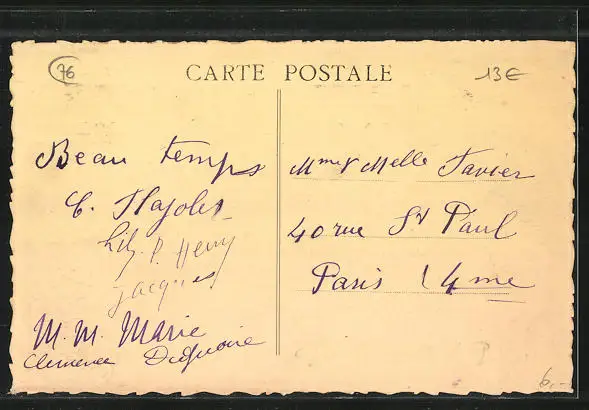 76
CARTE POSTALE
13€
Beau temps
Mme & Melle Tavier
40 rue St Paul
Paris (4me
Lily. P. Henry
Jacques
M. M. Marie
Clemence
6,-